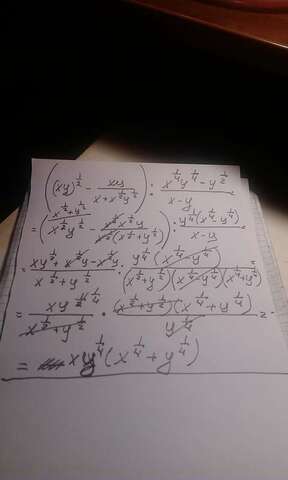 ((xy)^{1/2} - xy/(x + x^{1/2}y^{1/2})) : (x^{1/4}y^{1/4} - y^{1/2})/(x - y) =
x^{1/2}+y^{1/2}
= (x^{1/2}y^{1/2} - x^{1/2}x^{1/2}y/(x^{1/2}(x^{1/2}+y^{1/2}))) : y^{1/4}(x^{1/4}-y^{1/4})/(x-y) =
= (xy^{1/2} + x^{1/2}y - x^{1/2}y)/(x^{1/2}+y^{1/2}) : y^{1/4}(x^{1/4}-y^{1/4})/((x^{1/2}+y^{1/2})(x^{1/4}-y^{1/4})(x^{1/4}+y^{1/4})) =
= xy^{1/4}y^{1/4}/(x^{1/2}+y^{1/2}) · (x^{1/2}+y^{1/2})(x^{1/4}+y^{1/4})/y^{1/4} =
= xy^{1/4}(x^{1/4}+y^{1/4})